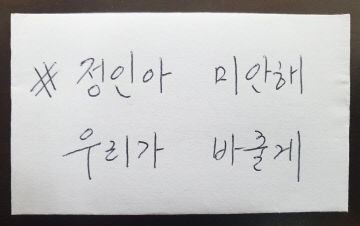 # 정인아 미안해
우리가 바꿀게